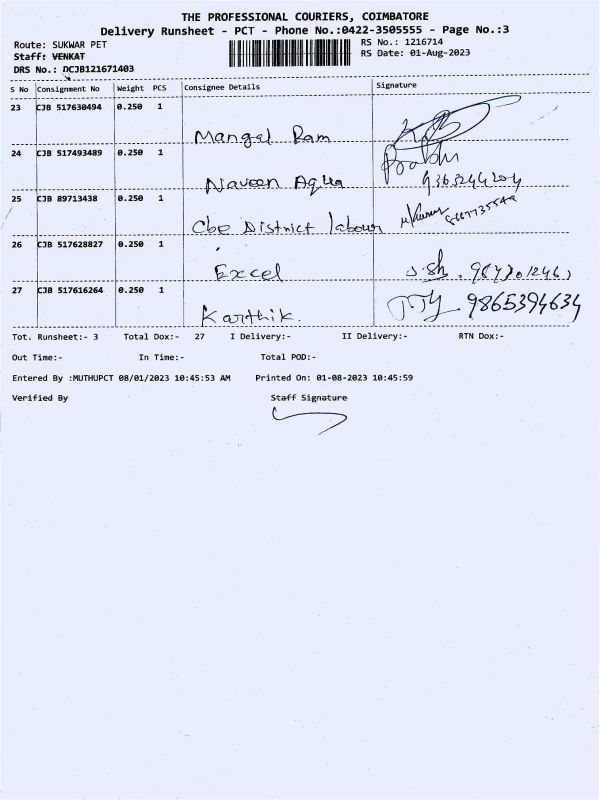 THE PROFESSIONAL COURIERS, COIMBATORE
Delivery Runsheet - PCT - Phone No.:0422-3505555 - Page No.:3
Route: SUKWAR PET
RS No.: 1216714
Staff: VENKAT
RS Date: 01-Aug-2023
DRS No.: DCJB121671403
S No Consignment No Weight PCS Consignee Details Signature
23 CJB 517630494 0.250 1
Mangal Ram
24 CJB 517493489 0.250 1
Prabhu
Naveen Aqua
25 CJB 89713438 0.250 1
Cbe District labour
26 CJB 517628827 0.250 1
Excel
27 CJB 517616264 0.250 1
Karthik. 9865394634
Tot. Runsheet:- 3 Total Dox:- 27 I Delivery:- II Delivery:- RTN Dox:-
Out Time:- In Time:- Total POD:-
Entered By :MUTHUPCT 08/01/2023 10:45:53 AM Printed On: 01-08-2023 10:45:59
Verified By Staff Signature